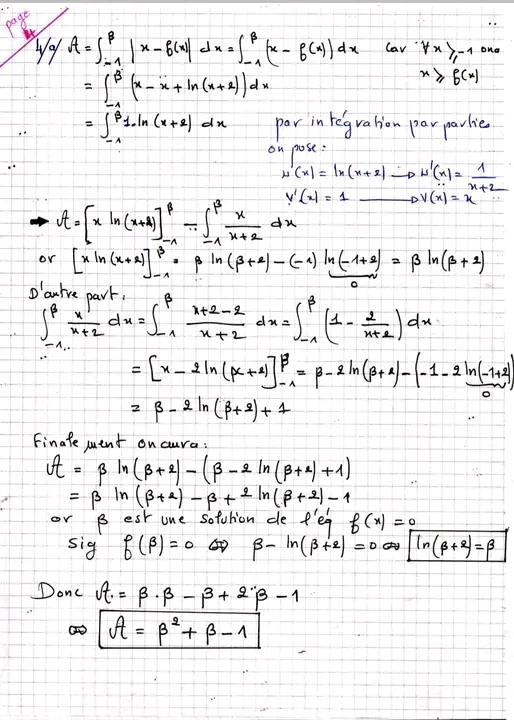 page 4
4/a) A = ∫_{-1}^{β} |x - f(x)| dx = ∫_{-1}^{β} (x - f(x)) dx car ∀x ≥ -1 on a
x ≥ f(x)
= ∫_{-1}^{β} (x - x + ln(x+2)) dx
= ∫_{-1}^{β} 1.ln(x+2) dx par intégration par parties
on pose :
u'(x) = ln(x+2) → u'(x) = 1/(x+2)
v'(x) = 1 → v(x) = x
➡ A = [x ln(x+2)]_{-1}^{β} - ∫_{-1}^{β} x/(x+2) dx
or [x ln(x+2)]_{-1}^{β} = β ln(β+2) - (-1) ln(-1+2) = β ln(β+2)
0
D'autre part :
∫_{-1}^{β} x/(x+2) dx = ∫_{-1}^{β} (x+2-2)/(x+2) dx = ∫_{-1}^{β} (1 - 2/(x+2)) dx
= [x - 2 ln(x+2)]_{-1}^{β} = β - 2 ln(β+2) - (-1 - 2 ln(-1+2))
0
= β - 2 ln(β+2) + 1
Finalement on aura :
A = β ln(β+2) - (β - 2 ln(β+2) + 1)
= β ln(β+2) - β + 2 ln(β+2) - 1
or β est une solution de l'éq f(x) = 0
sig f(β) = 0 ⇔ β - ln(β+2) = 0 ⇔ ln(β+2) = β
Donc A = β.β - β + 2β - 1
⇔ A = β² + β - 1